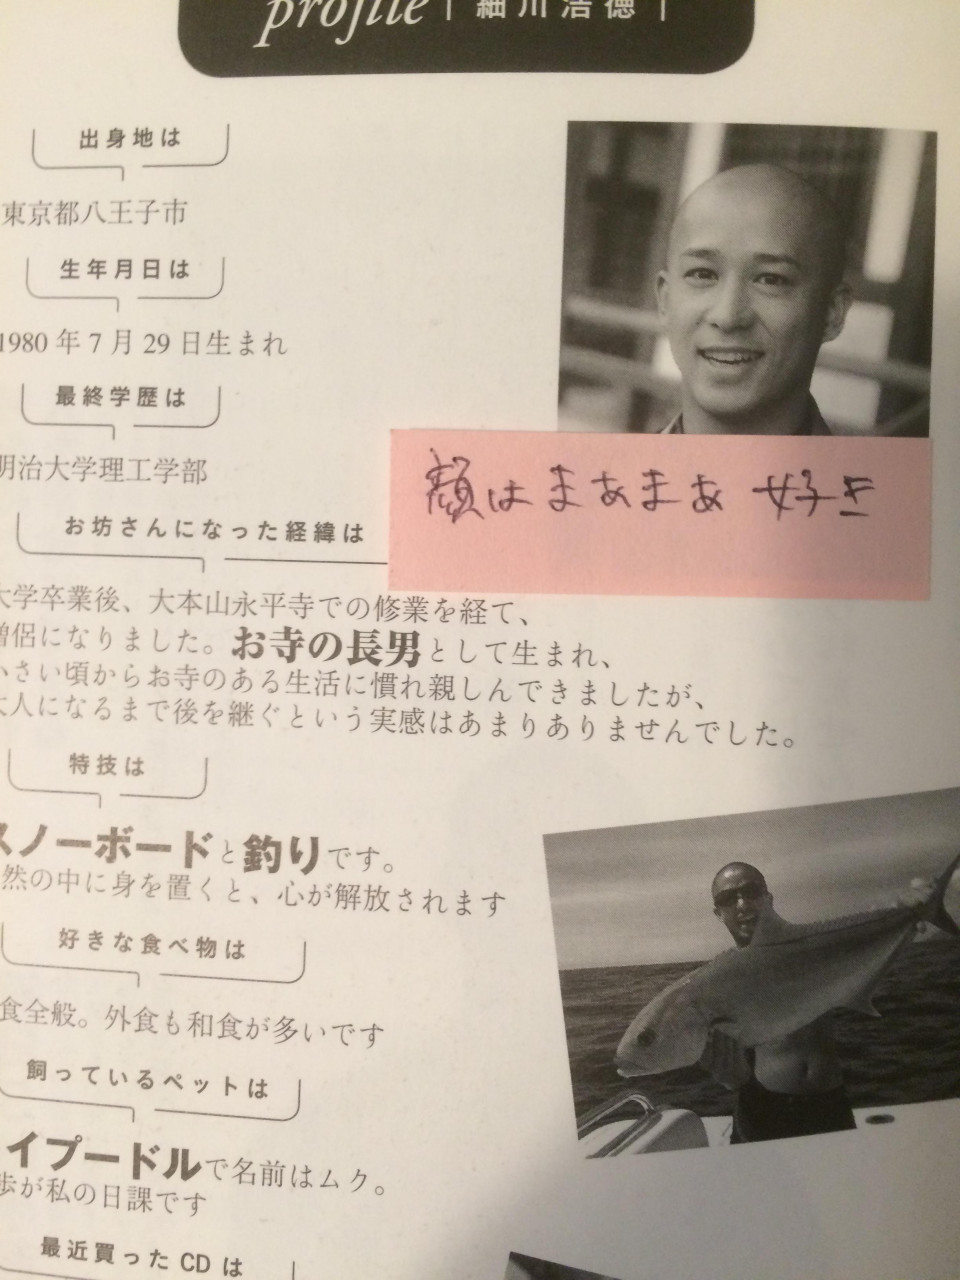 profile 細川浩徳
出身地は
東京都八王子市
生年月日は
1980年7月29日生まれ
最終学歴は
明治大学理工学部
顔はまあまあ 好き
お坊さんになった経緯は
大学卒業後、大本山永平寺での修業を経て、
僧侶になりました。お寺の長男として生まれ、
小さい頃からお寺のある生活に慣れ親しんできましたが、
大人になるまで後を継ぐという実感はあまりありませんでした。
特技は
スノーボードと釣りです。
然の中に身を置くと、心が解放されます
好きな食べ物は
食全般。外食も和食が多いです
飼っているペットは
イプードルで名前はムク。
歩が私の日課です
最近買ったCDは